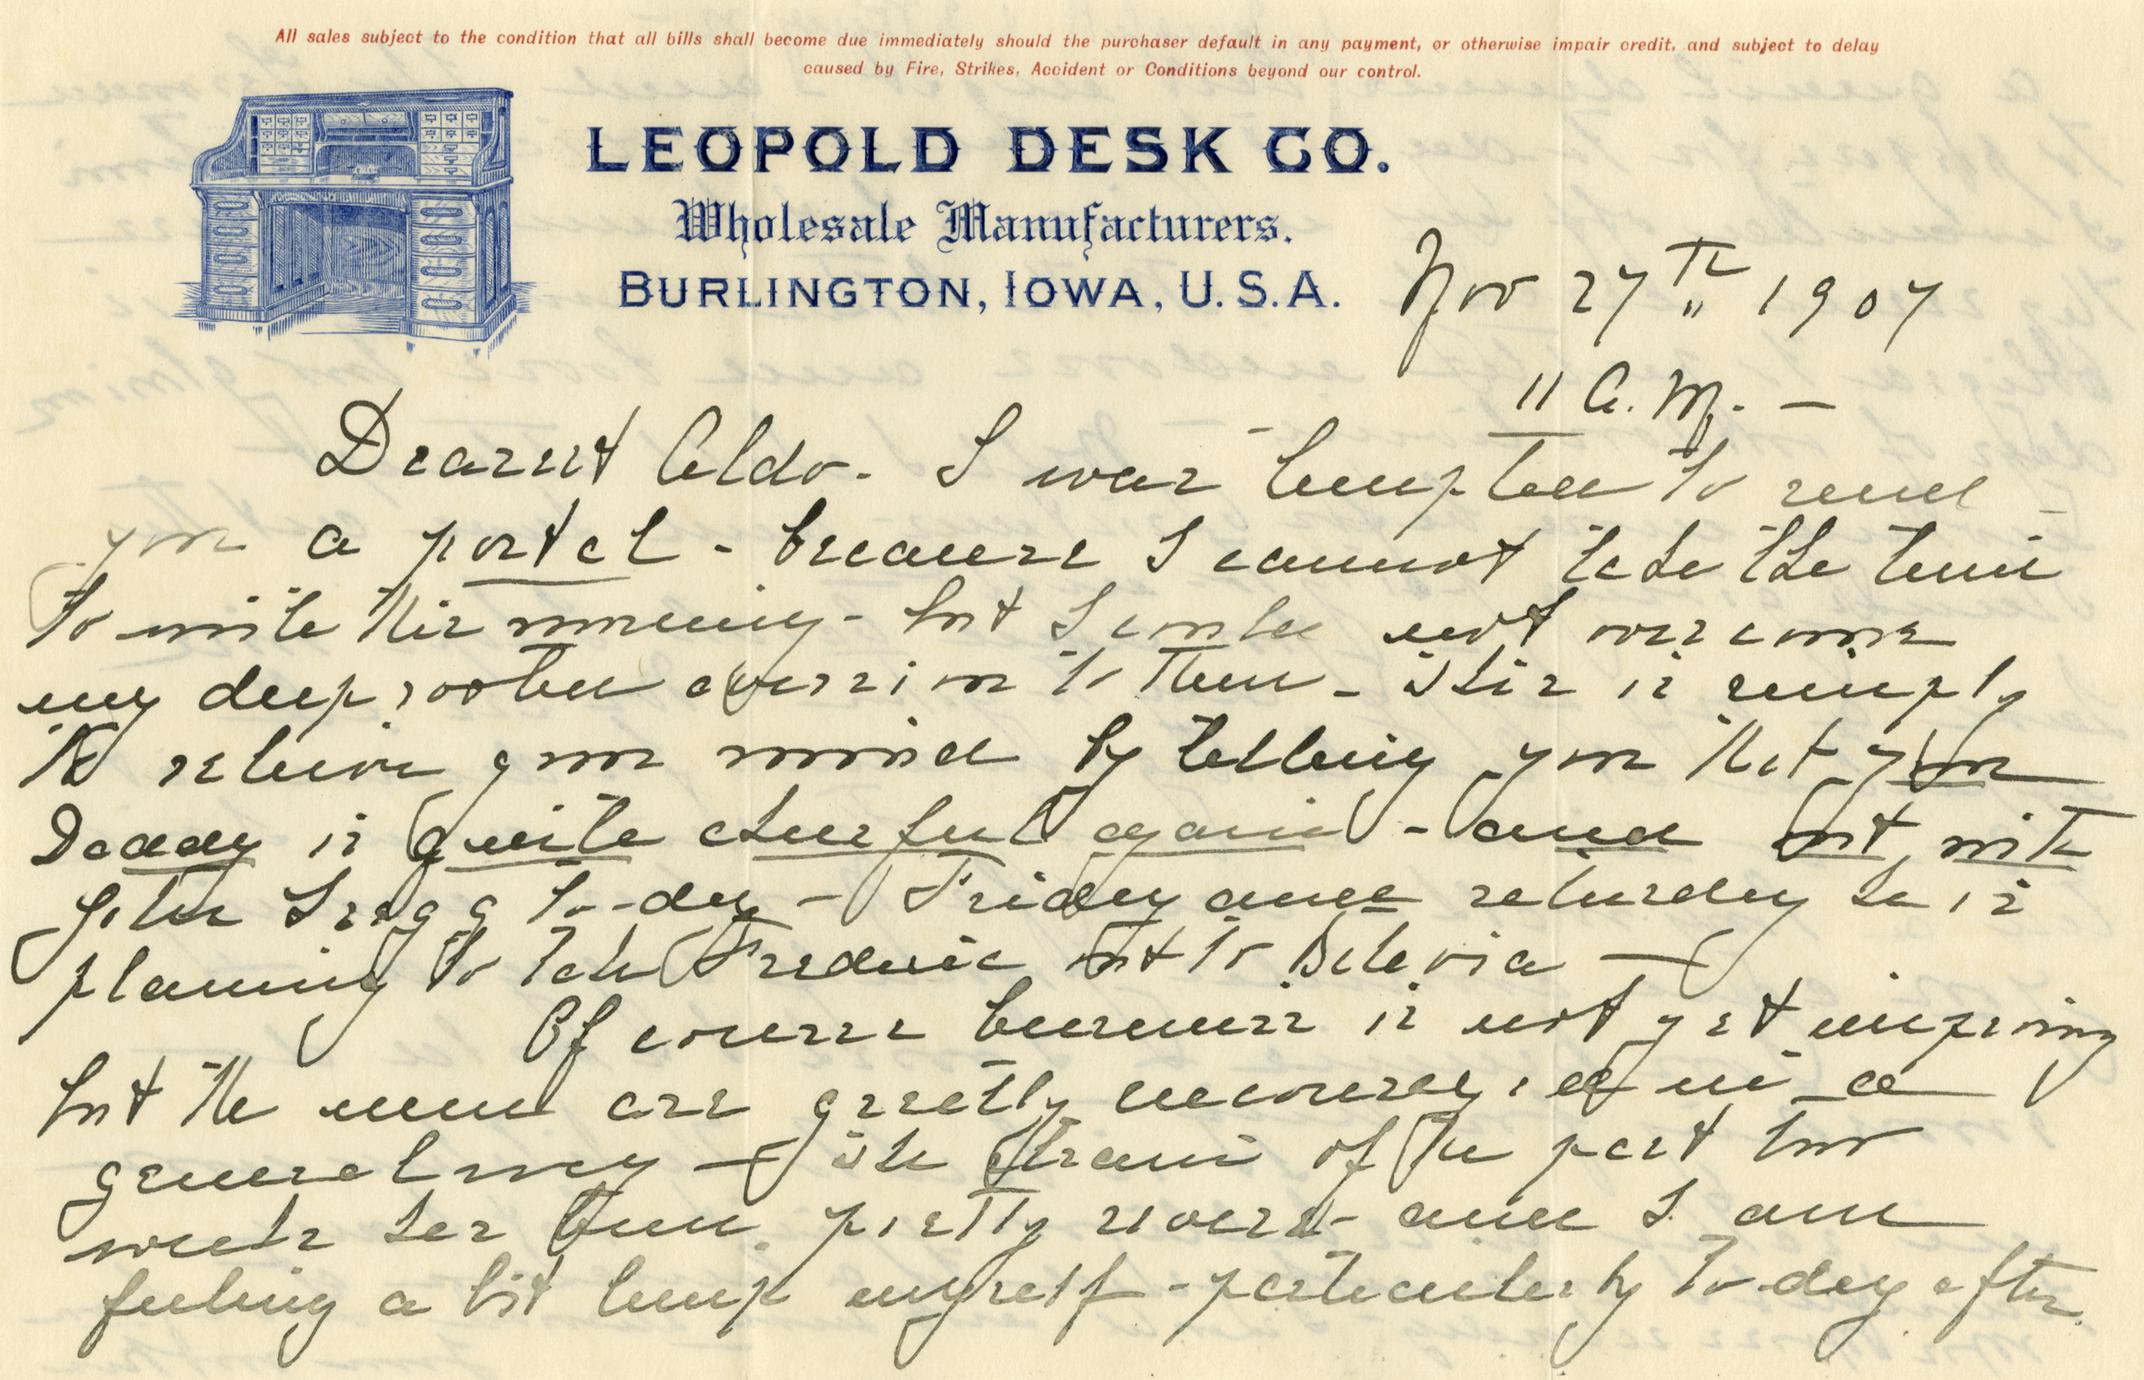 All sales subject to the condition that all bills shall become due immediately should the purchaser default in any payment, or otherwise impair credit, and subject to delay
caused by Fire, Strikes, Accident or Conditions beyond our control.
LEOPOLD DESK CO.
Wholesale Manufacturers.
BURLINGTON, IOWA, U.S.A.
Nov 27th 1907
11 A.M. —
Dearest Aldo. I was tempted to send
you a postal - because I cannot take the time
to write this morning - but I could not overcome
my deep rooted aversion to them - This is simply
to relieve your mind by telling you that your
Daddy is quite cheerful again - and out with
John Gregg to-day - Friday and saturday he is
planning to take Frederic out to Batavia —
Of course business is not yet improving
but the men are greatly encouraged in a
general way — The strain of the past two
weeks has been pretty severe - and I am
feeling a bit limp myself - particularly to-day after